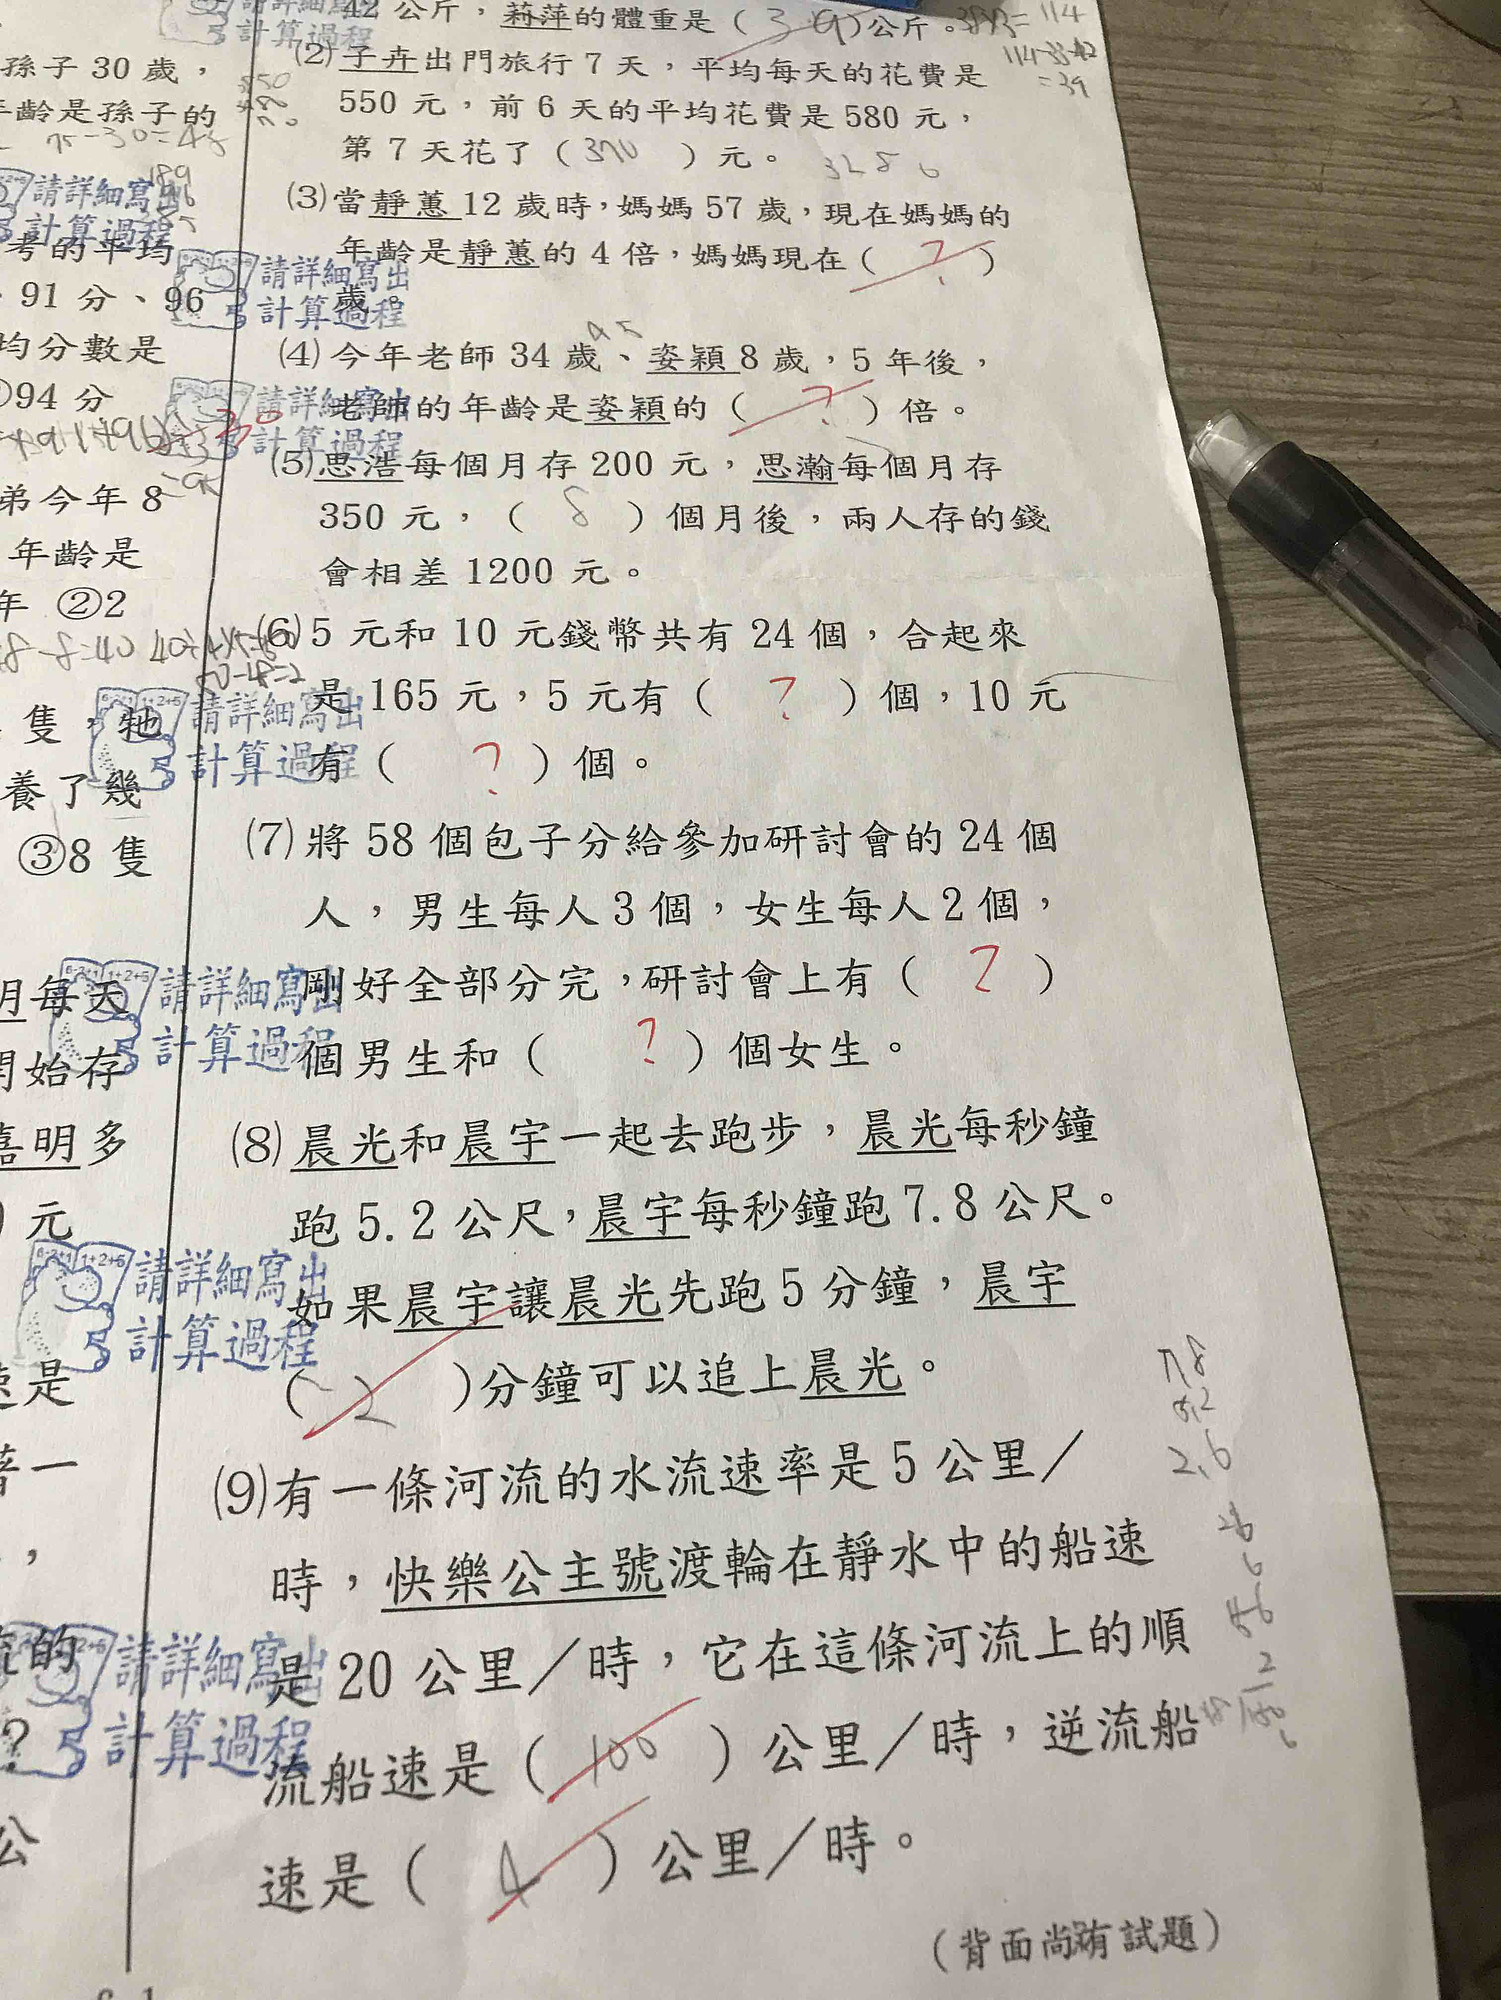 孫子 30 歲，
年齡是孫子的
75-30=45
請詳細寫出
計算過程
考的平均
91 分、96
均分數是
94 分
弟今年 8
年齡是
年 ②2
隻，牠
養了幾
③8 隻
明每天
開始存
嘉明多
元
速是
著一
流的
公
42 公斤，莉萍的體重是（39）公斤。38×3=114
114-33-42
=39
(2)子卉出門旅行 7 天，平均每天的花費是
550 元，前 6 天的平均花費是 580 元，
第 7 天花了（370）元。
(3)當靜蕙 12 歲時，媽媽 57 歲，現在媽媽的
年齡是靜蕙的 4 倍，媽媽現在（？）
歲。
45
(4)今年老師 34 歲、姿穎 8 歲，5 年後，
老師的年齡是姿穎的（？）倍。
(5)思浩每個月存 200 元，思瀚每個月存
350 元，（8）個月後，兩人存的錢
會相差 1200 元。
(6)5 元和 10 元錢幣共有 24 個，合起來
是 165 元，5 元有（？）個，10 元
有（？）個。
(7)將 58 個包子分給參加研討會的 24 個
人，男生每人 3 個，女生每人 2 個，
剛好全部分完，研討會上有（？）
個男生和（？）個女生。
(8)晨光和晨宇一起去跑步，晨光每秒鐘
跑 5.2 公尺，晨宇每秒鐘跑 7.8 公尺。
如果晨宇讓晨光先跑 5 分鐘，晨宇
（2）分鐘可以追上晨光。
7.8
5.2
2.6
(9)有一條河流的水流速率是 5 公里／
時，快樂公主號渡輪在靜水中的船速
是 20 公里／時，它在這條河流上的順
流船速是（100）公里／時，逆流船
速是（4）公里／時。
（背面尚有試題）
請詳細寫出
計算過程
請詳細寫出
計算過程
請詳細寫出
計算過程
請詳細寫出
計算過程
請詳細寫出
計算過程
請詳細寫出
計算過程